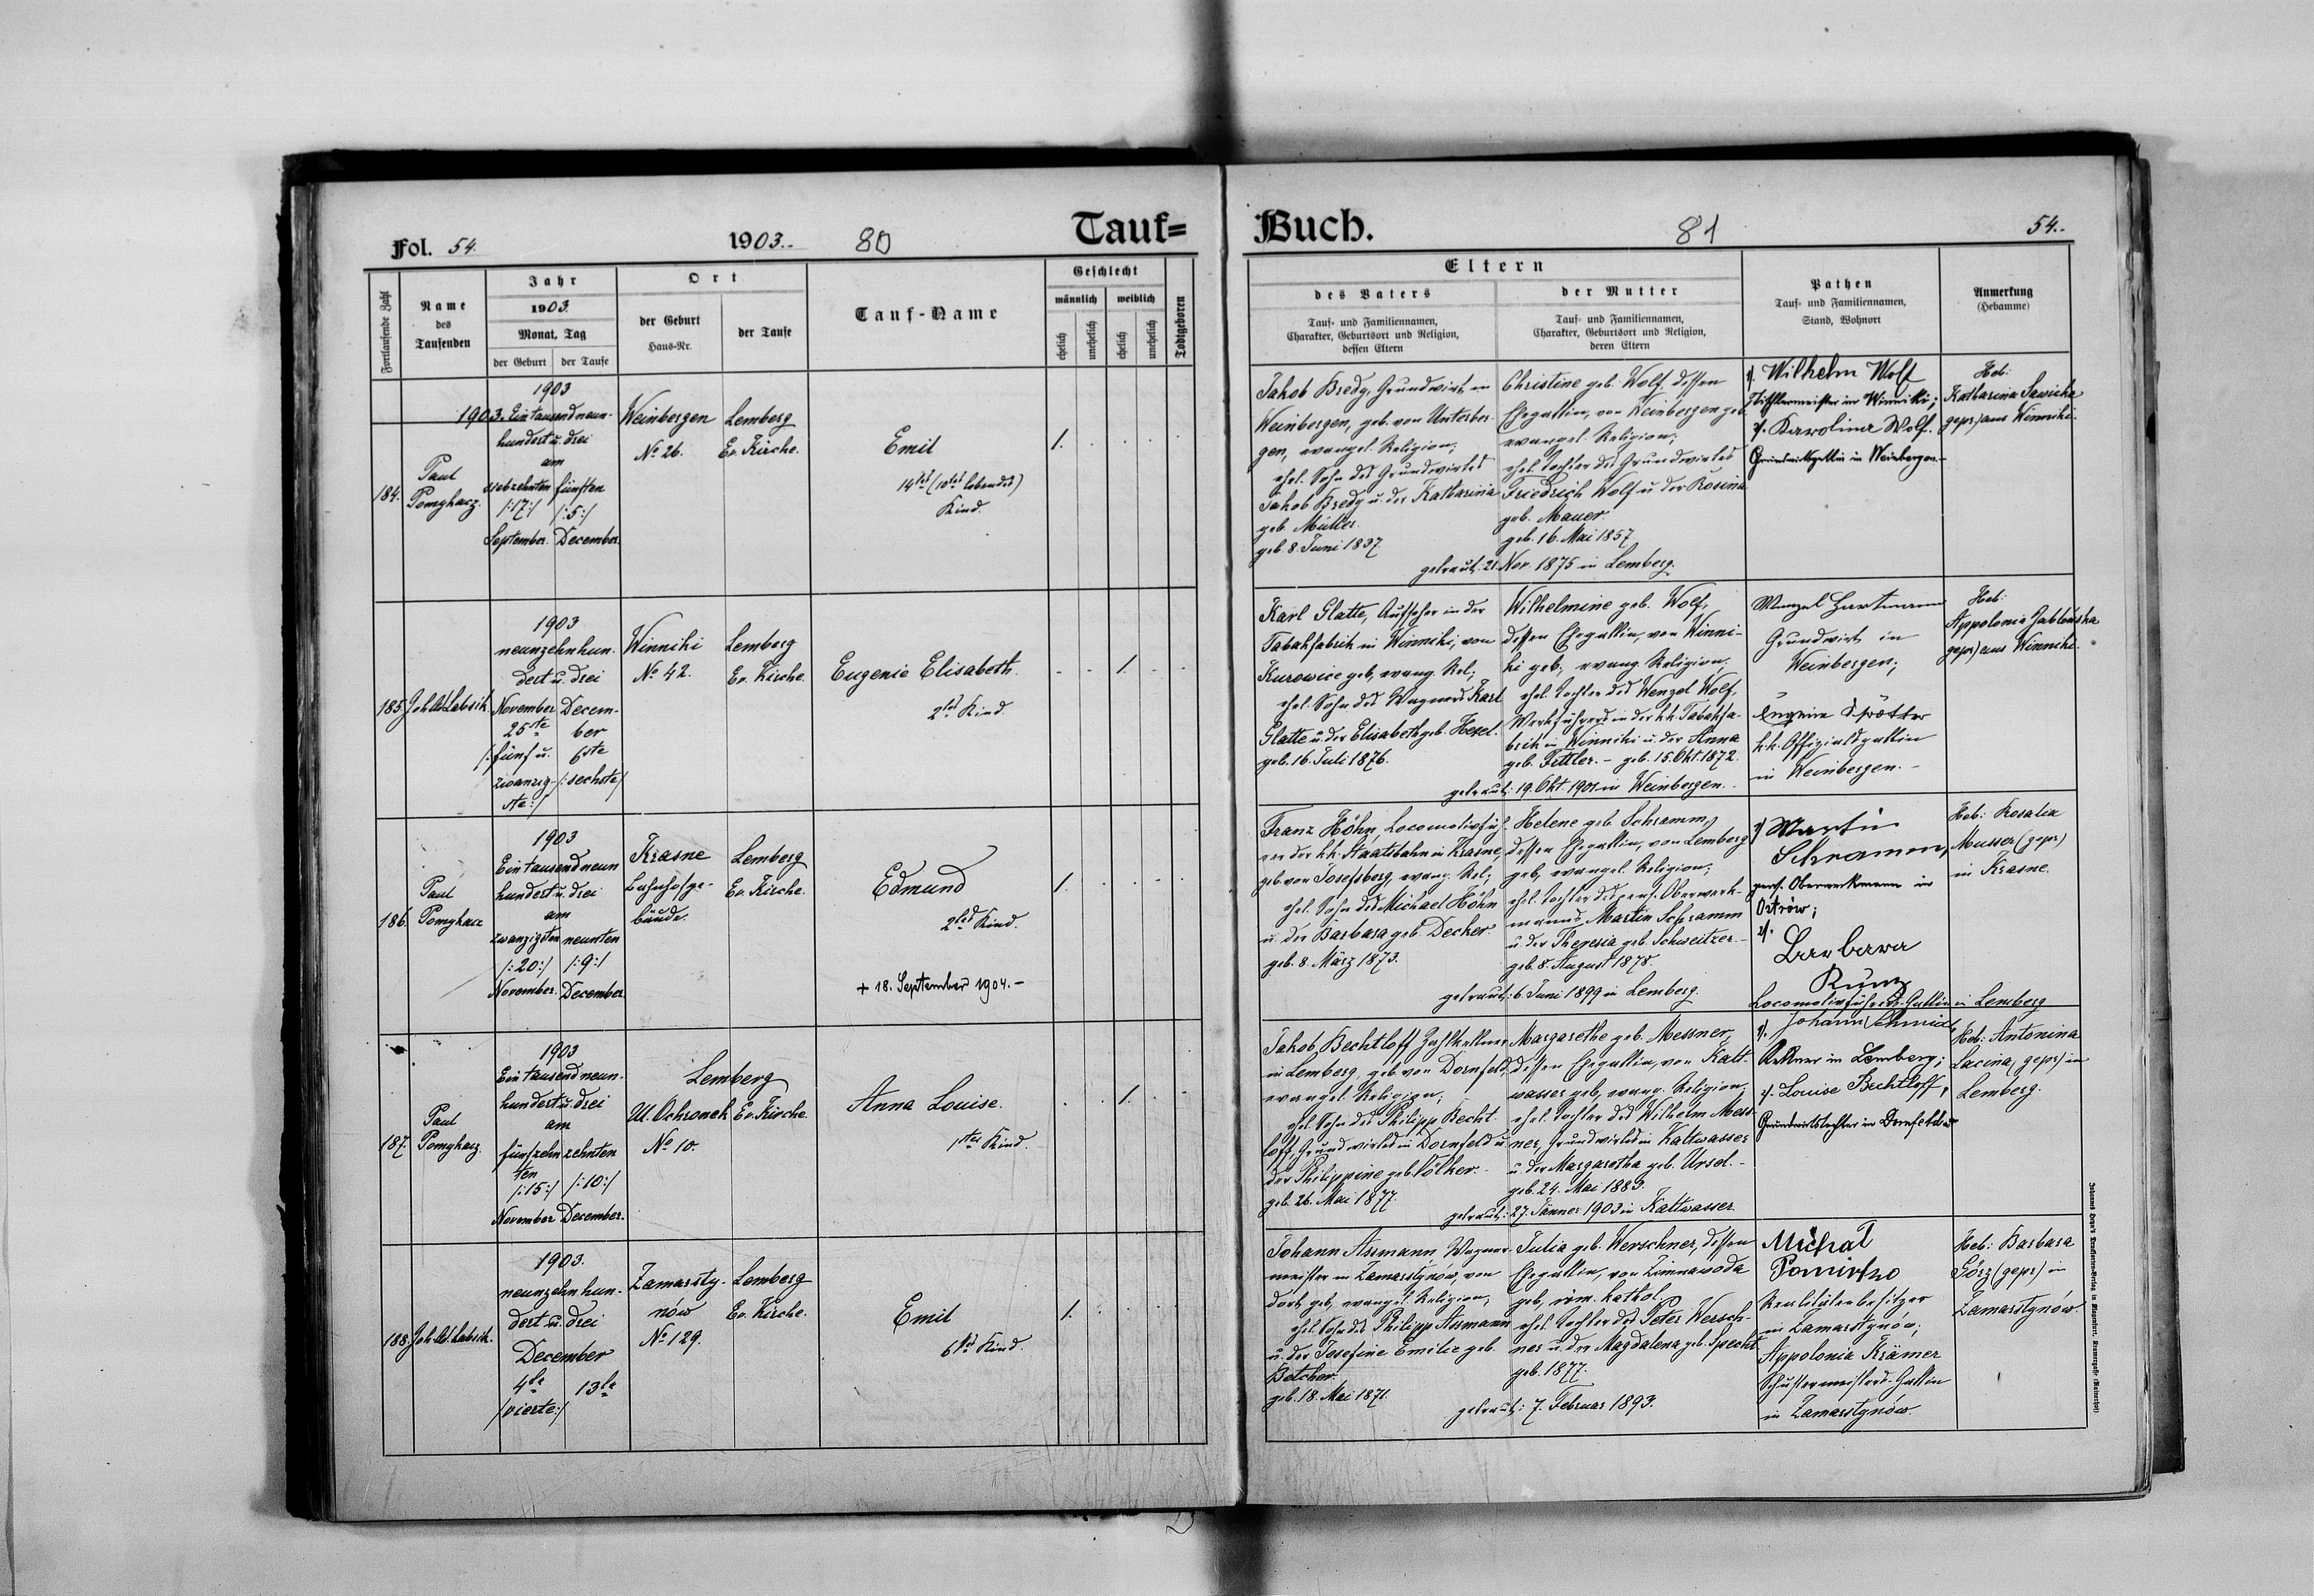 Fol. 54.
1903..
80
Tauf=
Fortlaufende Zahl
Name
des
Taufenden
Jahr
1903.
Monat, Tag
der Geburt
der Taufe
Ort
der Geburt
Haus-Nr.
der Taufe
Tauf-Name
Geschlecht
männlich
weiblich
ehelich
unehelich
ehelich
unehelich
Todtgeboren
184.
Paul
Pomykacz.
1903
1903. Eintausendneun-
hundert u. drei
am
siebzehnten fünften
/:17:/ /:5:/
September. December.
Weinbergen
No 26.
Lemberg
Ev. Kirche.
Emil
14tes (10tes lebendes)
Kind.
1.
185.
Joh. Ad. Labsik.
1903
neunzehnhun-
dert u. drei
November Decem-
25ste ber
/:fünf u. 6ste
zwanzig- /:sechste/
ste:/
Winniki
No 42.
Lemberg
Ev. Kirche.
Eugenie Elisabeth.
2tes Kind.
1.
186.
Paul
Pomykacz
1903
Eintausendneun
hundert u. drei
am
zwanzigsten neunten
/:20:/ /:9:/
November. December.
Krasne
Bahnhofge-
bäude.
Lemberg
Ev. Kirche.
Edmund
2tes Kind.
+ 18. September 1904.-
1.
187.
Paul
Pomykacz.
1903
Eintausendneun-
hundert u. drei
am
fünfzehn zehnten
ten
/:15:/ /:10:/
November December.
Lemberg
Ul. Ochronek Ev. Kirche.
No 10.
Anna Louise.
1stes Kind.
1.
188.
Joh. Ad. Labsik.
1903.
neunzehnhun-
dert u. drei
December
4te 13te
/vierte:/
Zamarsty-
nów
No 129.
Lemberg
Ev. Kirche.
Emil
6tes Kind.
1.
Buch.
81
54..
Eltern
des Vaters
Tauf- und Familiennamen,
Charakter, Geburtsort und Religion,
dessen Eltern
der Mutter
Tauf- und Familiennamen,
Charakter, Geburtsort und Religion,
deren Eltern
Pathen
Tauf- und Familiennamen,
Stand, Wohnort
Anmerkung
(Hebamme)
Jakob Bredy, Grundwirt in
Weinbergen, geb. von Unterber-
gen, evangel. Religion;
ehel. Sohn des Grundwirtes
Jakob Bredy u. der Katharina
geb. Müller.
geb. 8. Juni 1837.
Christine geb. Wolf, dessen
Ehegattin, von Weinbergen geb.
evangel. Religion;
ehel. Tochter des Grundwirtes
Friedrich Wolf u. der Rosina
geb. Mauer.
geb. 16. Mai 1857.
getraut: 21. Nov. 1875 in Lemberg.
1/. Wilhelm Wolf
Tischlermeister in Winniki;
2/. Karolina Wolf.
Grundwirtsgattin in Weinbergen.-
Heb:
Katharina Sawicka
gepr.) aus Winniki.
Karl Glatte, Aufseher in der
Tabakfabrik in Winniki, von
Kurowice geb., evang. Rel;
ehel. Sohn des Wagners Karl
Glatte u. der Elisabeth geb. Hexel.
geb. 16. Juli 1876.
Wilhelmine geb. Wolf,
dessen Ehegattin, von Winni-
ki geb., evang. Religion;
ehel. Tochter des Wenzel Wolf,
Werkführers in der k.k. Tabakfa-
brik in Winniki u. der Anna
geb. Fittler. - geb. 15. Okt. 1872.
getraut: 19. Okt. 1901 in Weinbergen.
Wenzel Hartmann
Grundwirt in
Weinbergen;
k.k. Offizialsgattin
in Weinbergen.-
Heb:
Appolonia Jablonska
gepr.) aus Winniki.
Franz Höhn, Locomotivfüh-
rer der k.k. Staatsbahn in Krasne,
geb. von Josefsberg, evang. Rel;
ehel. Sohn des Michael Höhn
u. der Barbara geb. Decker.
geb. 8. März 1873.
Helene geb. Schramm,
dessen Ehegattin, von Lemberg
geb., evangel. Religion;
ehel. Tochter des pens. Oberwerk-
manns Martin Schramm
u. der Theresia geb. Schweitzer.-
geb. 8. August 1878.
getraut: 6. Juni 1899 in Lemberg.
1/ Martin
Schramm,
pens. Oberwerkmann in
Ostrów;
2/.
Barbara
Kunz
Locomotivführers-Gattin in Lemberg
Heb: Rosalia
Musser (gepr)
in Krasne.
Jakob Bechtloff Zahlkellner
in Lemberg, geb. von Dornfeld,
evangel. Religion;
ehel. Sohn des Philipp Becht-
loff, Grundwirtes in Dornfeld u.
der Philippine geb. Völker.-
geb. 26. Mai 1877.
Margarethe geb. Messner,
dessen Ehegattin, von Kalt-
wasser geb., evang. Religion,
ehel. Tochter des Wilhelm Mess-
ner, Grundwirtes in Kaltwasser
u. der Margaretha geb. Ursel.-
geb. 24. Mai 1883.
getraut: 27. Jänner 1903 in Kaltwasser.
1/. Johann Schmidt,
Kellner in Lemberg;
2/. Louise Bechtloff,
Grundwirtstochter in Dornfeld.
Heb: Antonina
Lacina (gepr) in
Lemberg.
Johann Assmann Wagner-
meister in Zamarstynów, von
dort geb., evangel. Religion;
ehel. Sohn des Philipp Assmann
u. der Josefine Emilie geb.
Betcher.
geb. 18. Mai 1871.
Julia geb. Werschner, dessen
Ehegattin, von Zimnawoda
geb., röm. kathol.,
ehel. Tochter des Peter Wersch-
ner u. der Magdalena geb. Specht
geb. 1877.
getraut: 7. Februar 1893.
Michał
Realitätenbesitzer
in Zamarstynów;
Appolonia Krämer
Schustermeisters-Gattin
in Zamarstynów.
Heb: Barbara
Górz (gepr) in
Zamarstynów.